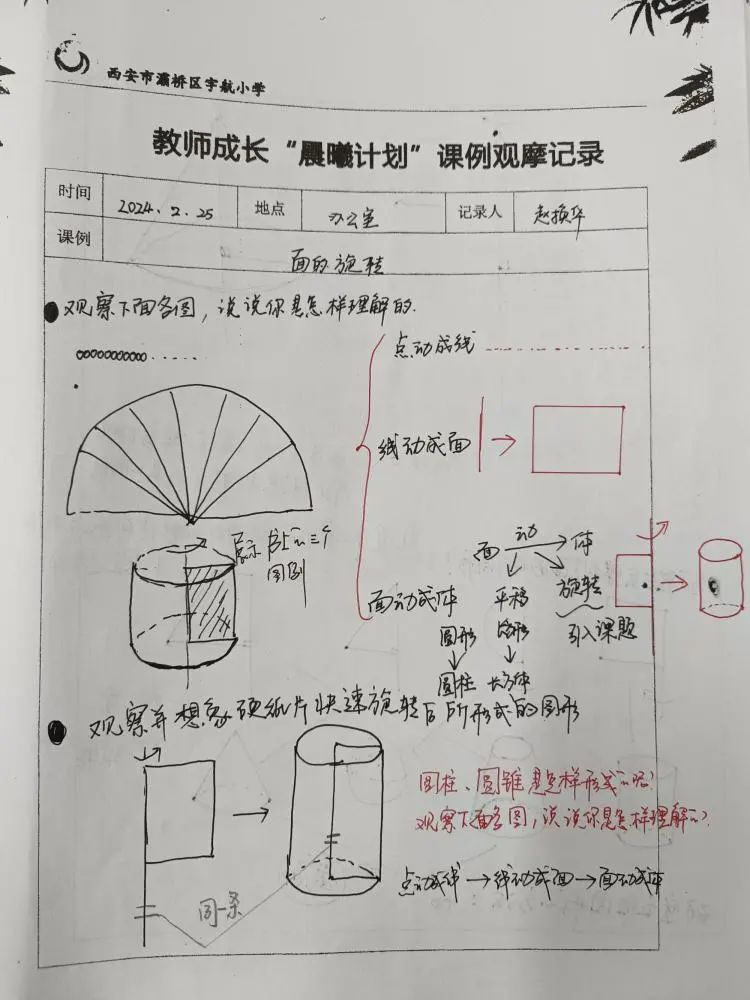 西安市灞桥区宇航小学
教师成长“晨曦计划”课例观摩记录
时间 2024.2.25 地点 办公室 记录人
课例 面的旋转
观察下面各图，说说你是怎样理解的.
点动成线
线动成面
展示书上的三个
图例
面 动 体
面动成体 平移 旋转
圆形 引入课题
圆柱 长方体
观察并想象硬纸片快速旋转后所形成的图形
圆柱、圆锥是怎样形成的呢?
观察下面各图,说说你是怎样理解的?
点动成线→线动成面→面动成体
同一条